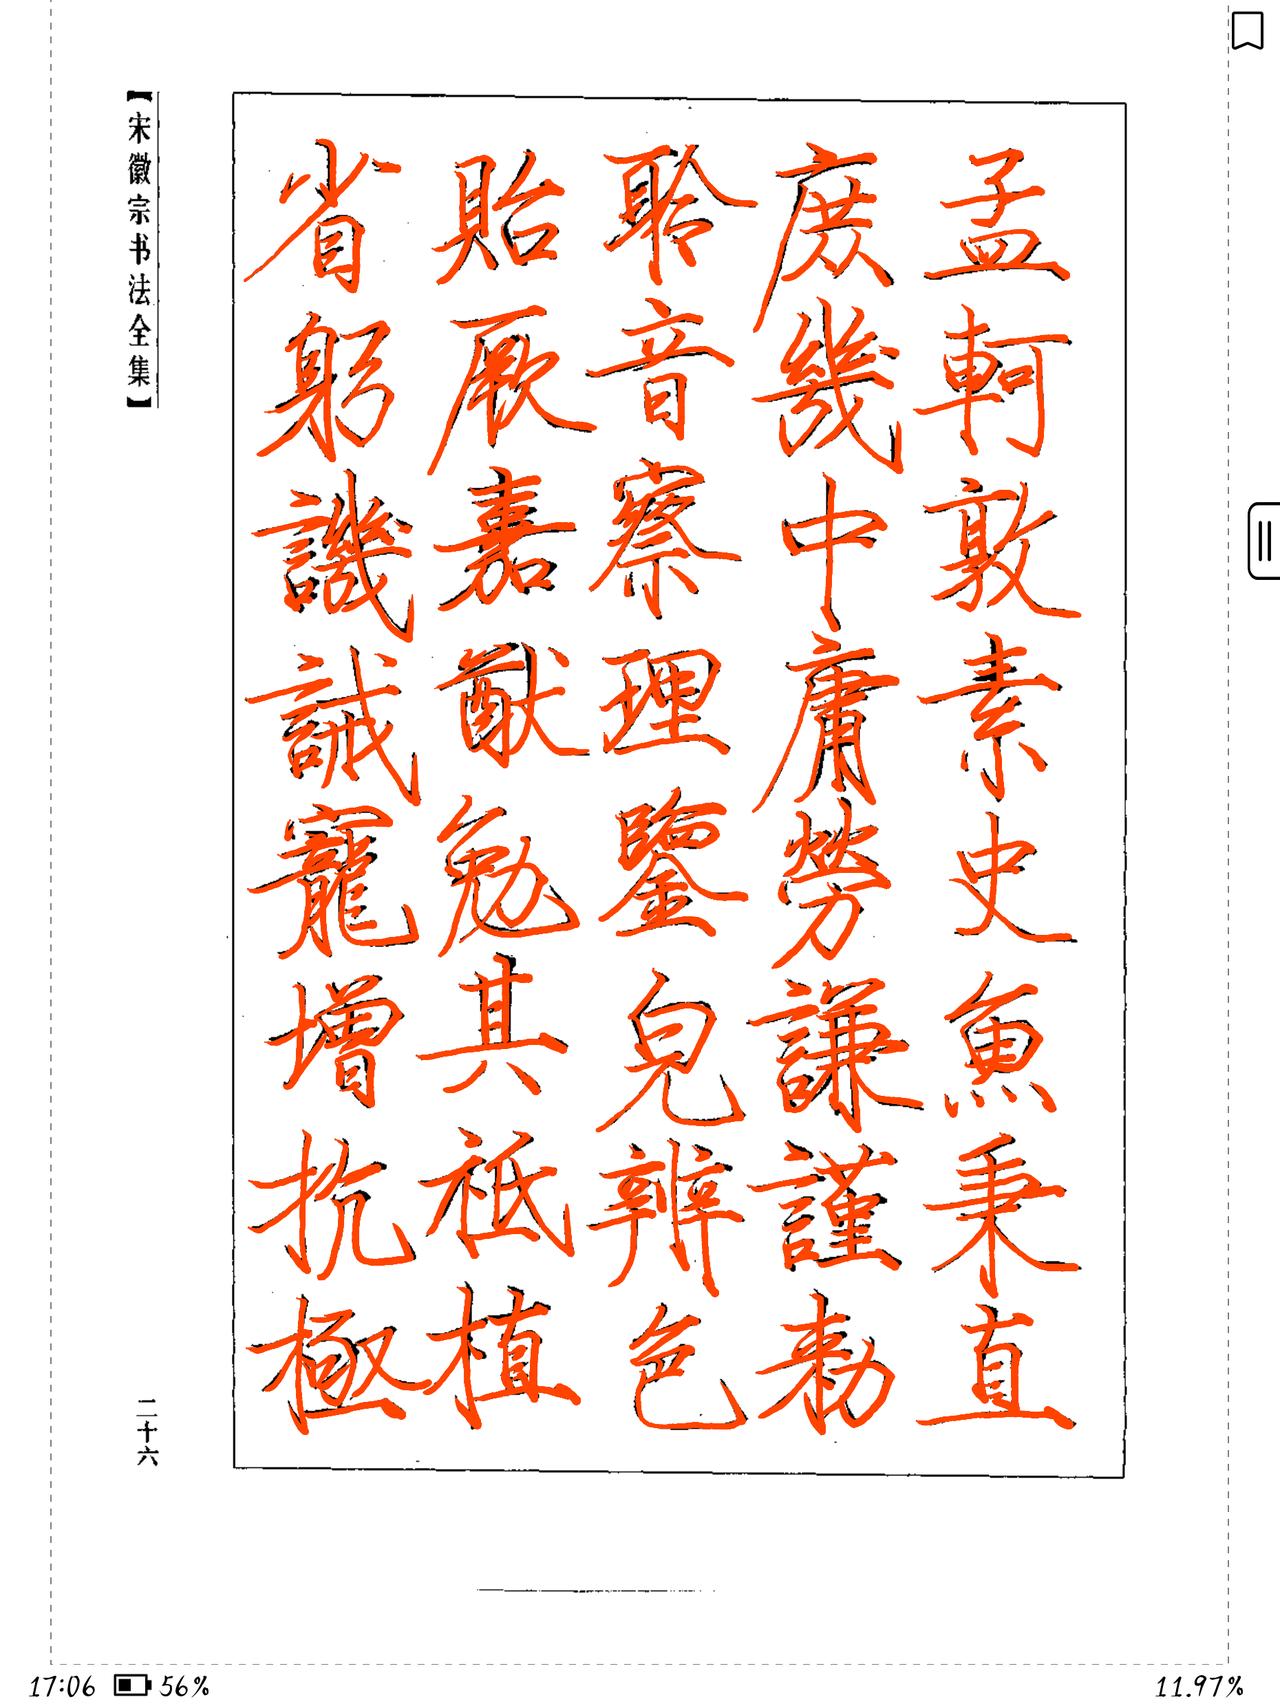 孟軻敦素史魚秉直
庶幾中庸勞謙謹勑
聆音察理鑒皃辨色
貽厥嘉猷勉其祗植
省躬譏誡寵增抗極
【宋徽宗书法全集】
二十六
17:06 56% 11.97%